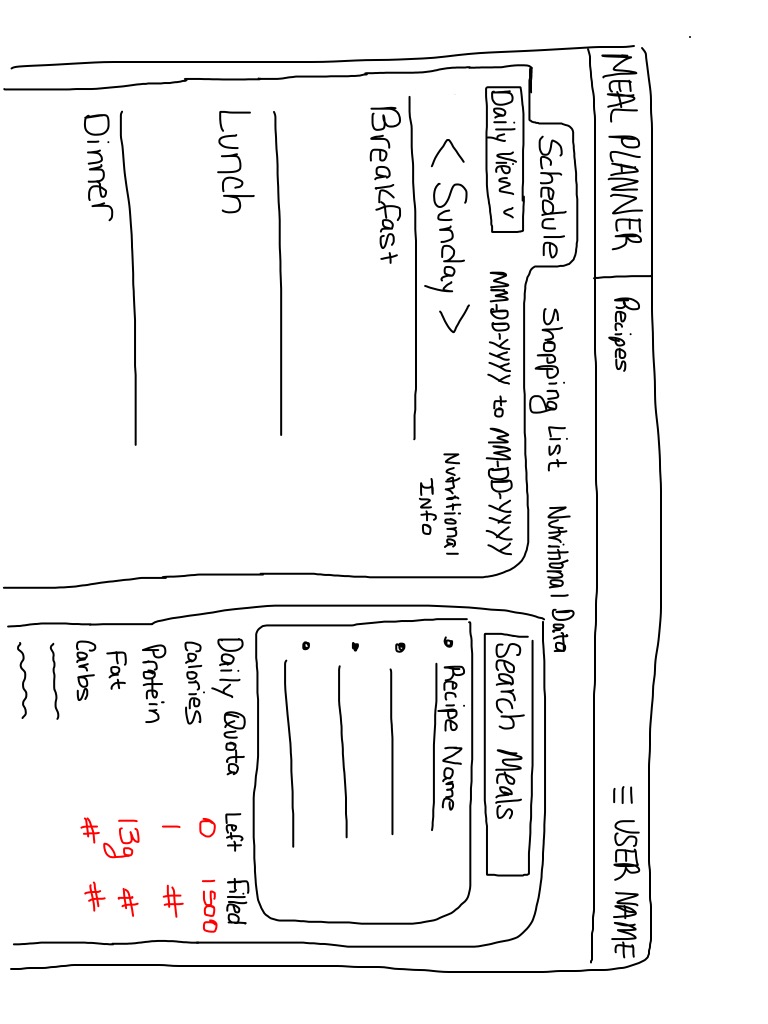 MEAL PLANNER
Recipes
☰ USER NAME
Schedule
Shopping List
Nutritional Data
Daily View v
MM-DD-YYYY to MM-DD-YYYY
< Sunday >
Nutritional
INfo
Breakfast
Lunch
Dinner
Search Meals
• Recipe Name
Daily Quota Left Filled
Calories 0 1500
Protein 1 #
Fat 13g #
Carbs # #